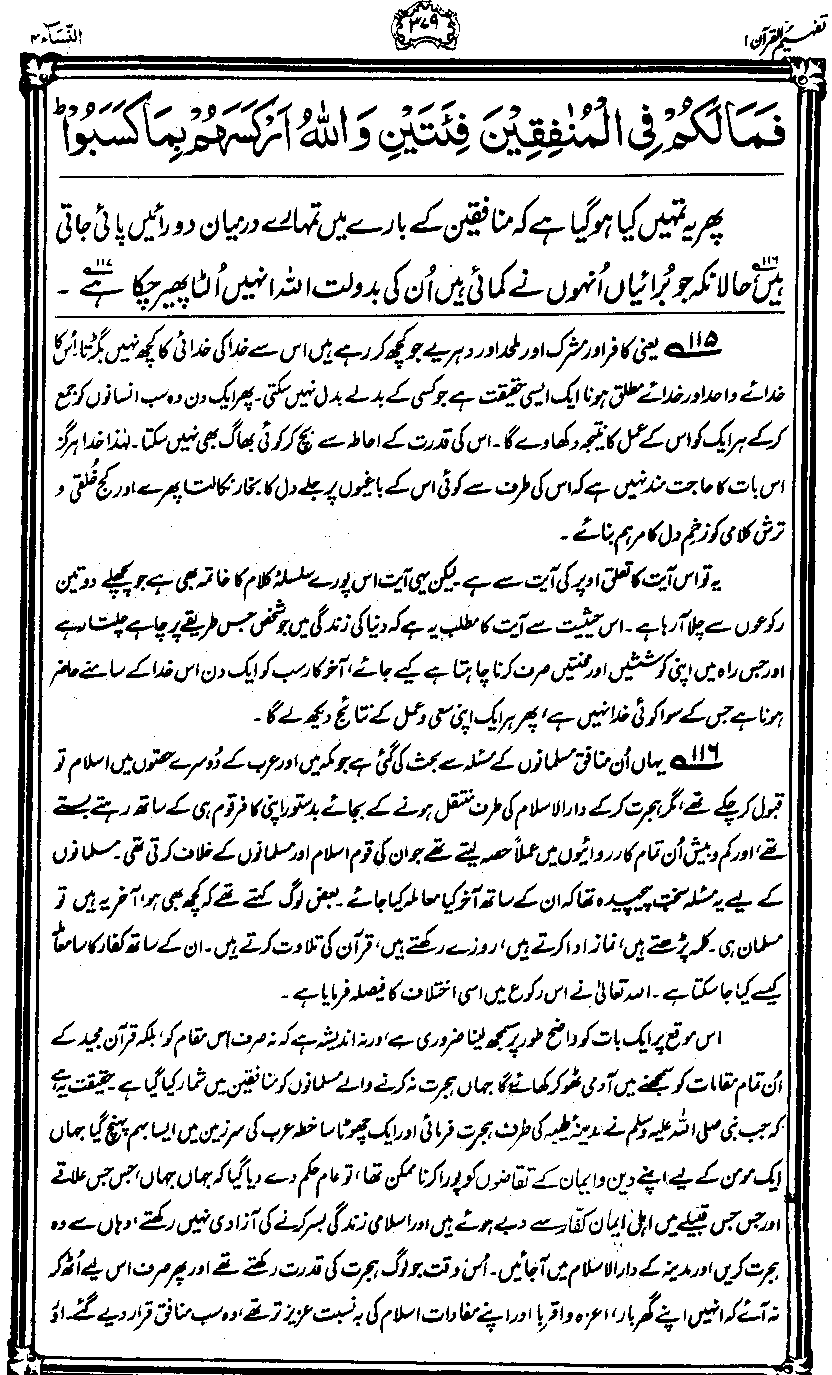 تفہیم القرآن ۱
۳۷۹
النساء ۴
فَمَا لَكُمْ فِي الْمُنٰفِقِيْنَ فِئَتَيْنِ وَاللّٰهُ اَرْكَسَهُمْ بِمَا كَسَبُوْا ؕ
پھر یہ تمہیں کیا ہو گیا ہے کہ منافقین کے بارے میں تمہارے درمیان دو رائیں پائی جاتی
ہیں۱۱۶ حالانکہ جو بُرائیاں اُنہوں نے کمائی ہیں اُن کی بدولت اللہ انہیں اُلٹا پھیر چکا ہے۱۱۷ ۔
۱۱۵ یعنی کافر اور مشرک اور ملحد اور دہریے جو کچھ کر رہے ہیں اس سے خدا کی خدائی کا کچھ نہیں بگڑتا، اُس کا
خدائے واحد اور خدائے مطلق ہونا ایک ایسی حقیقت ہے جو کسی کے بدلے بدل نہیں سکتی۔ پھر ایک دن وہ سب انسانوں کو جمع
کر کے ہر ایک کو اس کے عمل کا نتیجہ دکھاوے گا۔ اس کی قدرت کے احاطہ سے بچ کر کوئی بھاگ بھی نہیں سکتا۔ لہٰذا خدا ہرگز
اس بات کا حاجت مند نہیں ہے کہ اس کی طرف سے کوئی اس کے باغیوں پر جلے دل کا بخار نکالتا پھرے اور کج خُلقی و
ترش کلامی کو زخمِ دل کا مرہم بنائے ۔
یہ تو اس آیت کا تعلق اوپر کی آیت سے ہے۔ لیکن یہی آیت اس پورے سلسلۂ کلام کا خاتمہ بھی ہے جو پچھلے دو تین
رکوعوں سے چلا آ رہا ہے ۔ اس حیثیت سے آیت کا مطلب یہ ہے کہ دنیا کی زندگی میں جو شخص جس طریقے پر چاہے چلتا رہے
اور جس راہ میں اپنی کوششیں اور محنتیں صرف کرنا چاہتا ہے کیے جائے، آخر کار سب کو ایک دن اس خدا کے سامنے حاضر
ہونا ہے جس کے سوا کوئی خدا نہیں ہے، پھر ہر ایک اپنی سعی و عمل کے نتائج دیکھ لے گا ۔
۱۱۶ یہاں اُن منافق مسلمانوں کے مسئلہ سے بحث کی گئی ہے جو مکہ میں اور عرب کے دُوسرے حصّوں میں اسلام تو
قبول کر چکے تھے، مگر ہجرت کر کے دار الاسلام کی طرف منتقل ہونے کے بجائے بدستور اپنی کافر قوم ہی کے ساتھ رہتے بستے
تھے، اور کم و بیش اُن تمام کارروائیوں میں عملاً حصہ لیتے تھے جو ان کی قوم اسلام اور مسلمانوں کے خلاف کرتی تھی۔ مسلمانوں
کے لیے یہ مسئلہ سخت پیچیدہ تھا کہ ان کے ساتھ آخر کیا معاملہ کیا جائے ۔ بعض لوگ کہتے تھے کہ کچھ بھی ہو، آخر یہ ہیں تو
مسلمان ہی ۔ کلمہ پڑھتے ہیں، نماز ادا کرتے ہیں، روزے رکھتے ہیں، قرآن کی تلاوت کرتے ہیں۔ ان کے ساتھ کفار کا سا معاملہ
کیسے کیا جا سکتا ہے ۔ اللہ تعالیٰ نے اس رکوع میں اسی اختلاف کا فیصلہ فرمایا ہے ۔
اس موقع پر ایک بات کو واضح طور پر سمجھ لینا ضروری ہے، ورنہ اندیشہ ہے کہ نہ صرف اِس مقام کو، بلکہ قرآن مجید کے
اُن تمام مقامات کو سمجھنے میں آدمی ٹھوکر کھائے گا جہاں ہجرت نہ کرنے والے مسلمانوں کو منافقین میں شمار کیا گیا ہے۔ حقیقت یہ ہے
کہ جب نبی صلی اللہ علیہ وسلم نے مدینہ طیبہ کی طرف ہجرت فرمائی اور ایک چھوٹا سا خطہ عرب کی سرزمین میں ایسا بہم پہنچ گیا جہاں
ایک مومن کے لیے اپنے دین و ایمان کے تقاضوں کو پورا کرنا ممکن تھا، تو عام حکم دے دیا گیا کہ جہاں جہاں، جس جس علاقے
اور جس جس قبیلے میں اہلِ ایمان کفار سے دبے ہوئے ہیں اور اسلامی زندگی بسر کرنے کی آزادی نہیں رکھتے، وہاں سے وہ
ہجرت کریں اور مدینہ کے دار الاسلام میں آ جائیں۔ اُس وقت جو لوگ ہجرت کی قدرت رکھتے تھے اور پھر صرف اس لیے اُٹھ کر
نہ آئے کہ انہیں اپنے گھر بار، اعزہ و اقربا اور اپنے مفادات اسلام کی بہ نسبت عزیز تر تھے، وہ سب منافق قرار دیے گئے۔ اؤ